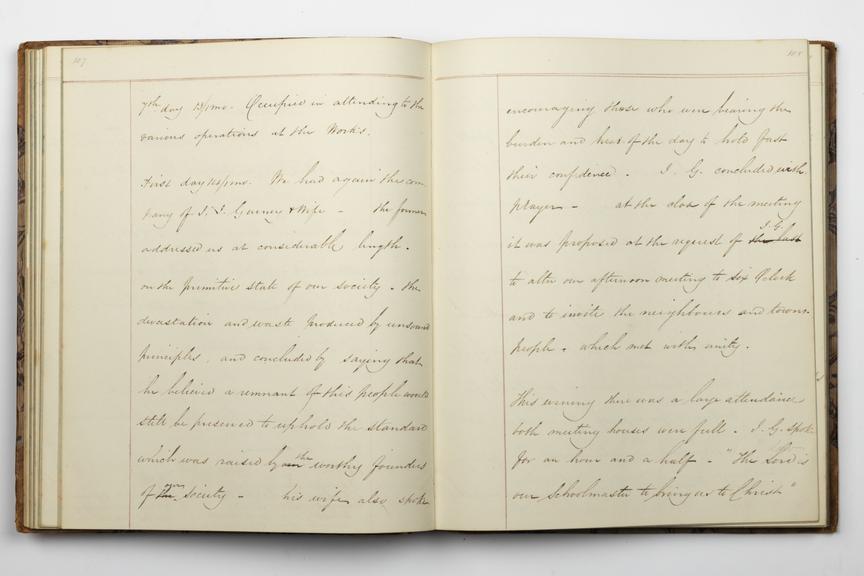 107
7th day 13/1mo. Occupied in attending to the
various operations at the Works.
First day 14/1mo. We had again the com
pany of J. J. Gurney & Wife - the former
addressed us at considerable length.
on the primitive state of our society - the
devastation and waste produced by unsound
principles, and concluded by saying that
he believed a remnant of this people would
still be preserved to uphold the standard
which was raised by our the worthy founders
of the our Society - his wife also spoke
108
encouraging those who were bearing the
burden and heat of the day to hold fast
their confidence. J. G. concluded with
prayer - at the close of the meeting
J. G.
it was proposed at the request of the last
to alter our afternoon meeting to six O'clock
and to invite the neighbours and towns-
people, which met with unity.
This evening there was a large attendance
both meeting houses were full. J. G. spoke
for an hour and a half - "The Lord is
our Schoolmaster to bring us to Christ"